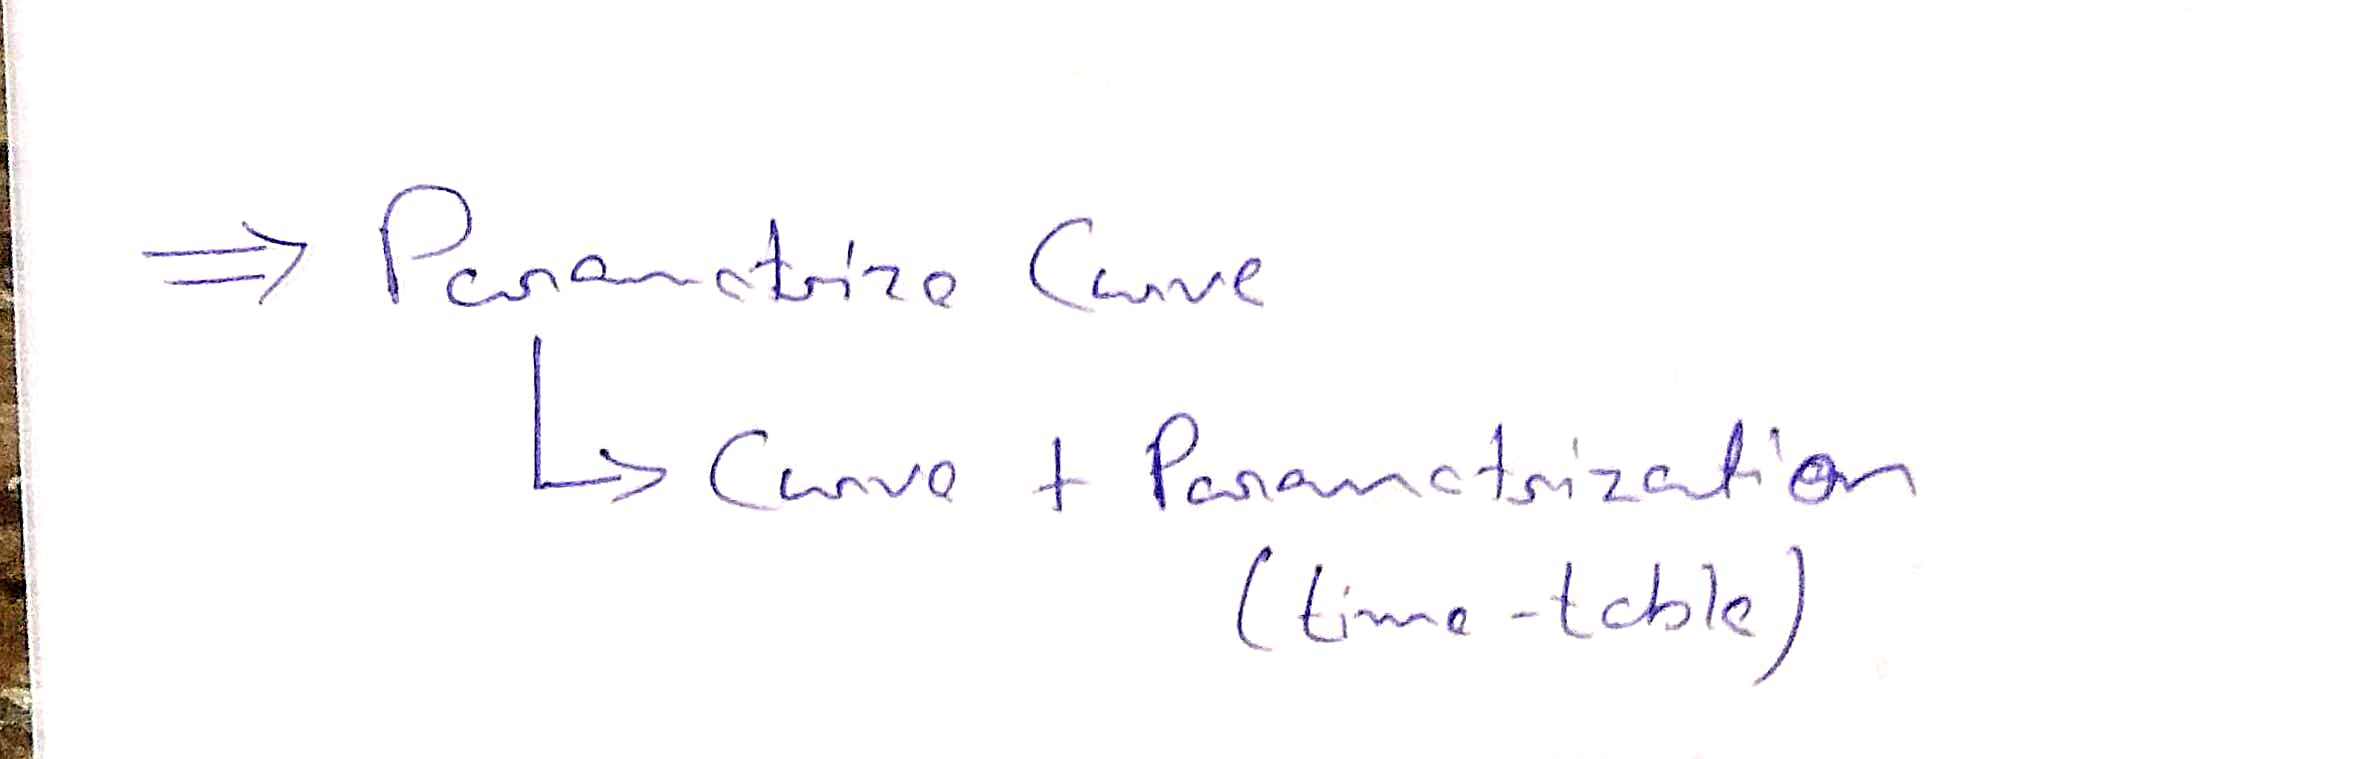 ⇒ Parametrize Curve
↳ Curve + Parametrization
(time-table)